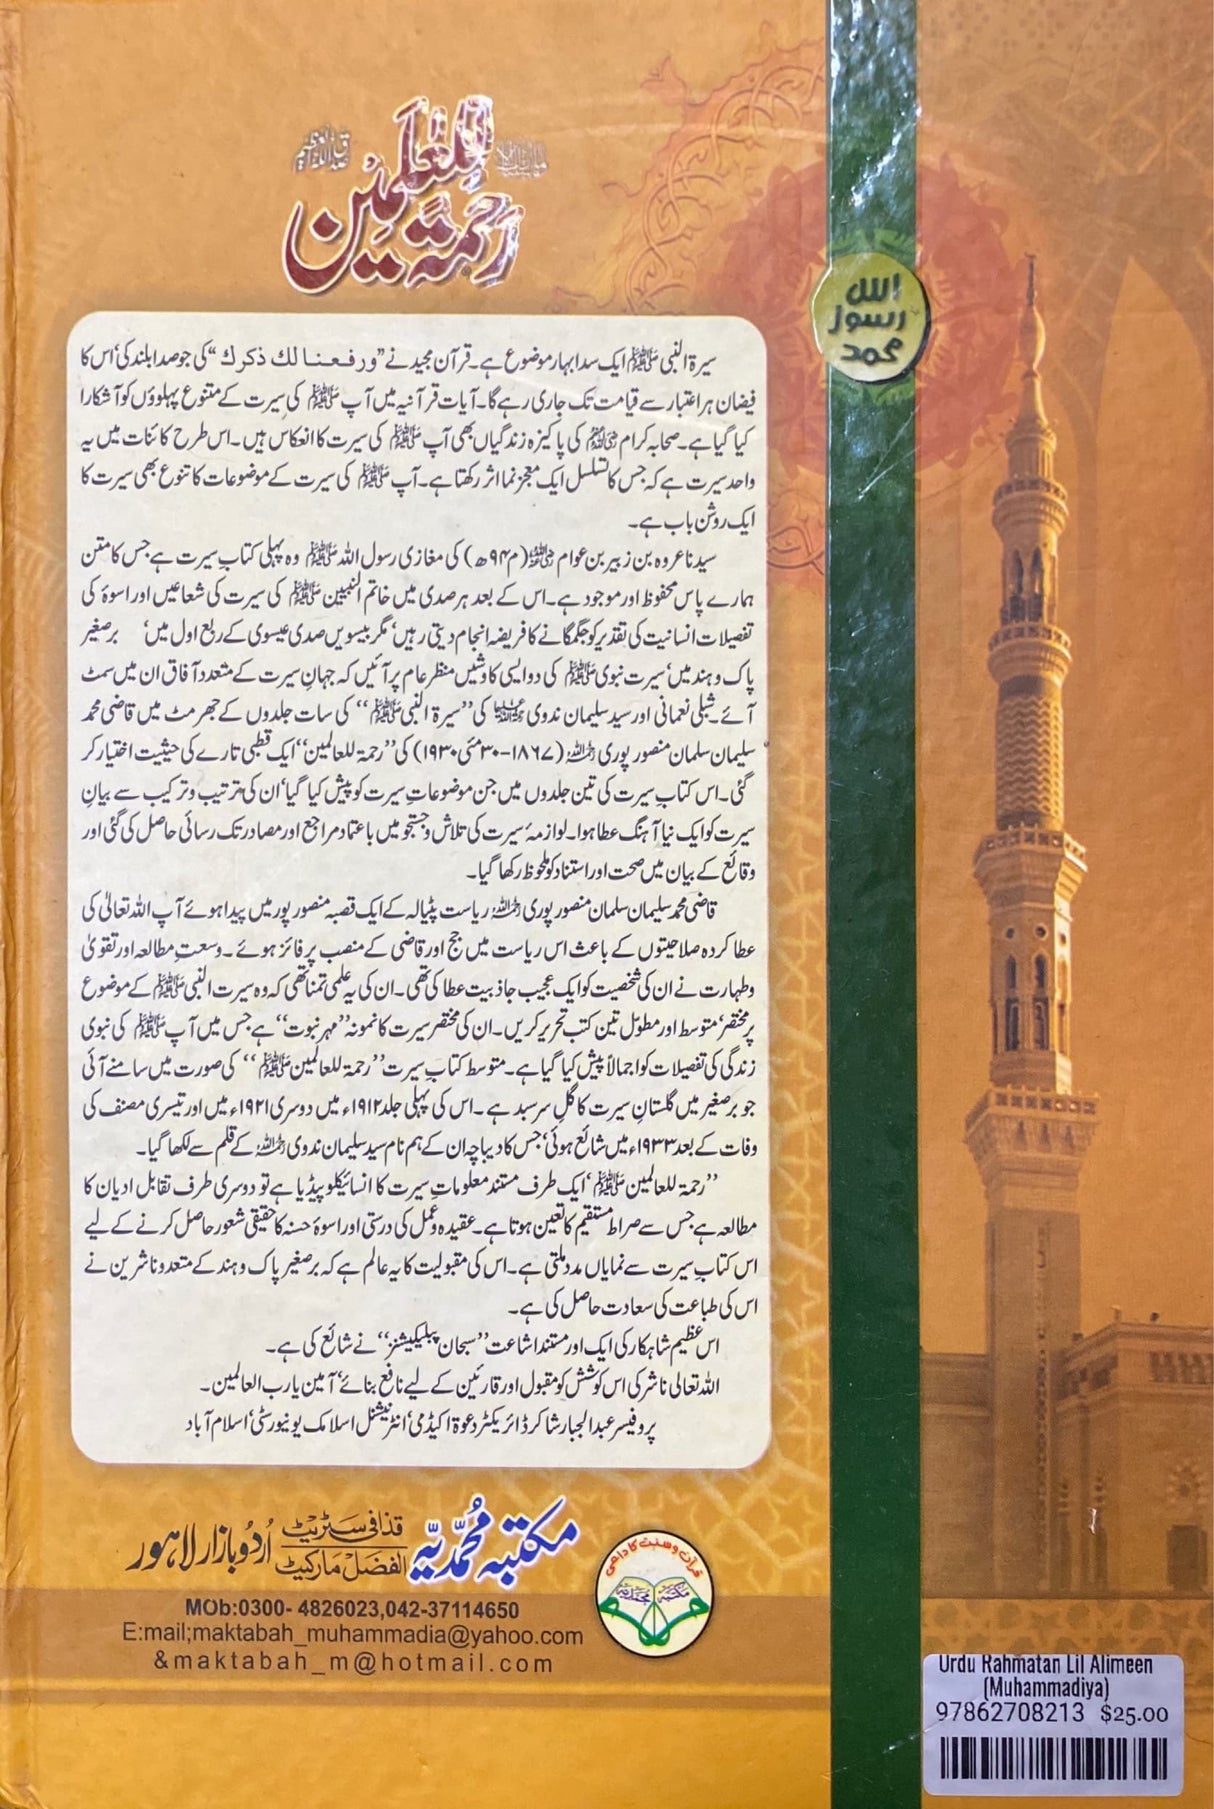 رحمۃ للعلمین
سیرۃ النبی ﷺ ایک سدا بہار موضوع ہے۔ قرآن مجید نے ”ورفعنا لك ذكرك“ کی جو صدا بلند کی‘ اس کا
فیضان ہر اعتبار سے قیامت تک جاری رہے گا۔ آیات قرآنیہ میں آپ ﷺ کی سیرت کے متنوع پہلوؤں کو آشکارا
کیا گیا ہے۔ صحابہ کرام کی پاکیزہ زندگیاں بھی آپ ﷺ کی سیرت کا انعکاس ہیں۔ اس طرح کائنات میں یہ
واحد سیرت ہے کہ جس کا تسلسل ایک معجز نما اثر رکھتا ہے۔ آپ ﷺ کی سیرت کے موضوعات کا تنوع بھی سیرت کا
ایک روشن باب ہے۔
سیدنا عروہ بن زبیر بن عوام (م ۹۴ھ) کی مغازی رسول اللہ ﷺ وہ پہلی کتاب سیرت ہے جس کا متن
ہمارے پاس محفوظ اور موجود ہے۔ اس کے بعد ہر صدی میں خاتم النبیین ﷺ کی سیرت کی شعاعیں اور اسوۂ کی
تفصیلات انسانیت کی تقدیر کو جگمگانے کا فریضہ انجام دیتی رہیں‘ مگر بیسویں صدی عیسوی کے ربع اول میں‘ برصغیر
پاک و ہند میں‘ سیرت نبوی ﷺ کی دو ایسی کاوشیں منظر عام پر آئیں کہ جہانِ سیرت کے متعدد آفاق ان میں سمٹ
آئے۔ شبلی نعمانی اور سید سلیمان ندوی کی ”سیرۃ النبی ﷺ“ کی سات جلدوں کے جھرمٹ میں قاضی محمد
سلیمان سلمان منصور پوری (۱۸۶۷-۳۰ مئی ۱۹۳۰) کی ”رحمۃ للعالمین“ ایک قطبی تارے کی حیثیت اختیار کر
گئی۔ اس کتاب سیرت کی تین جلدوں میں جن موضوعاتِ سیرت کو پیش کیا گیا‘ ان کی ترتیب و ترکیب سے بیانِ
سیرت کو ایک نیا آہنگ عطا ہوا۔ لوازمۂ سیرت کی تلاش و جستجو میں با عتماد مراجع اور مصادر تک رسائی حاصل کی گئی اور
وقائع کے بیان میں صحت اور استناد کو ملحوظ رکھا گیا۔
قاضی محمد سلیمان سلمان منصور پوری ریاست پٹیالہ کے ایک قصبہ منصور پور میں پیدا ہوئے آپ اللہ تعالیٰ کی
عطا کردہ صلاحیتوں کے باعث اس ریاست میں جج اور قاضی کے منصب پر فائز ہوئے۔ وسعتِ مطالعہ اور تقویٰ
و طہارت نے ان کی شخصیت کو ایک عجیب جاذبیت عطا کی تھی۔ ان کی یہ علمی تمنا تھی کہ وہ سیرت النبی ﷺ کے موضوع
پر مختصر‘ متوسط اور مطول تین کتب تحریر کریں۔ ان کی مختصر سیرت کا نمونہ ”مہر نبوت“ ہے جس میں آپ ﷺ کی نبوی
زندگی کی تفصیلات کو اجمالاً پیش کیا گیا ہے۔ متوسط کتاب سیرت ”رحمۃ للعالمین ﷺ“ کی صورت میں سامنے آئی
جو برصغیر میں گلستانِ سیرت کا گلِ سرسبد ہے۔ اس کی پہلی جلد ۱۹۱۲ء میں دوسری ۱۹۲۱ء میں اور تیسری مصنف کی
وفات کے بعد ۱۹۳۳ء میں شائع ہوئی‘ جس کا دیباچہ ان کے ہم نام سید سلیمان ندوی کے قلم سے لکھا گیا۔
”رحمۃ للعالمین ﷺ‘ ایک طرف مستند معلوماتِ سیرت کا انسائیکلو پیڈیا ہے تو دوسری طرف تقابل ادیان کا
مطالعہ ہے جس سے صراط مستقیم کا تعین ہوتا ہے۔ عقیدہ و عمل کی درستی اور اسوۂ حسنہ کا حقیقی شعور حاصل کرنے کے لیے
اس کتابِ سیرت سے نمایاں مدد ملتی ہے۔ اس کی مقبولیت کا یہ عالم ہے کہ برصغیر پاک و ہند کے متعدد ناشرین نے
اس کی طباعت کی سعادت حاصل کی ہے۔
اس عظیم شاہکار کی ایک اور مستند اشاعت ”سبحان پبلیکیشنز“ نے شائع کی ہے۔
اللہ تعالی ناشر کی اس کوشش کو مقبول اور قارئین کے لیے نافع بنائے‘ آمین یا رب العالمین۔
پروفیسر عبدالجبار شاکر ڈائریکٹر دعوۃ اکیڈمی‘ انٹرنیشنل اسلامک یونیورسٹی‘ اسلام آباد
الله
رسول
محمد
قرآن و سنت کا داعی
مکتبہ محمدیہ
مکتبہ محمدیّہ قذافی سٹریٹ الفضل مارکیٹ اُردو بازار لاہور
MOb:0300- 4826023,042-37114650
E:mail;maktabah_muhammadia@yahoo.com
&maktabah_m@hotmail.com
Urdu Rahmatan Lil Alimeen
(Muhammadiya)
97862708213 $25.00